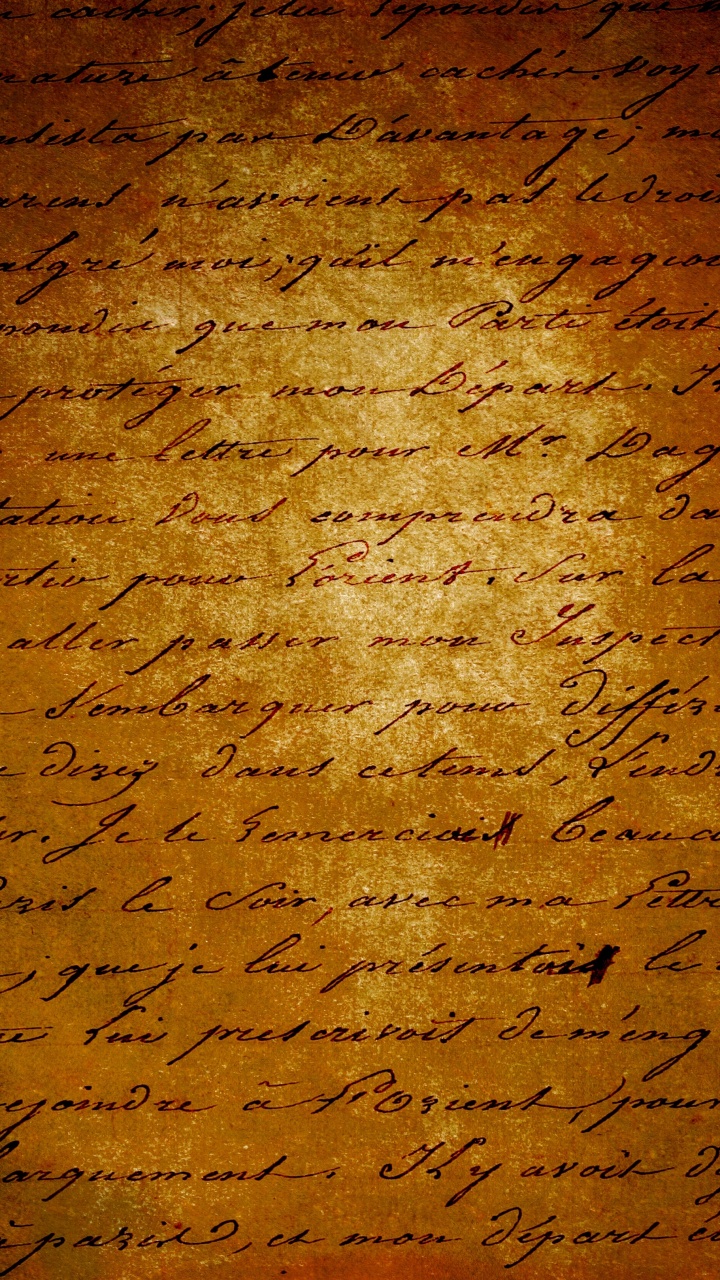 cacher; je lui repondis que
nature à tenir cachér. voy
nsista par Davantage; m
arens n'avoient pas le droi
algré moi; qu'il m'engageo
pondis que mon Parti étoit
protéger mon Départ. Il
une lettre pour Mr. Dag
tation Vous comprendra da
rtir pour l'orient. Sur la
aller passer mon Inspect
S'embarquer pour différ
e dizez dans cetems, Send
er. Je le remerciai beauc
aris le Soir, avec ma lettre
; que je lui présentai le
Lui prescrivoit de m'eng
rejoindre à l'Orient, pour
barquement. Il y avoit d
à paris, et mon départ